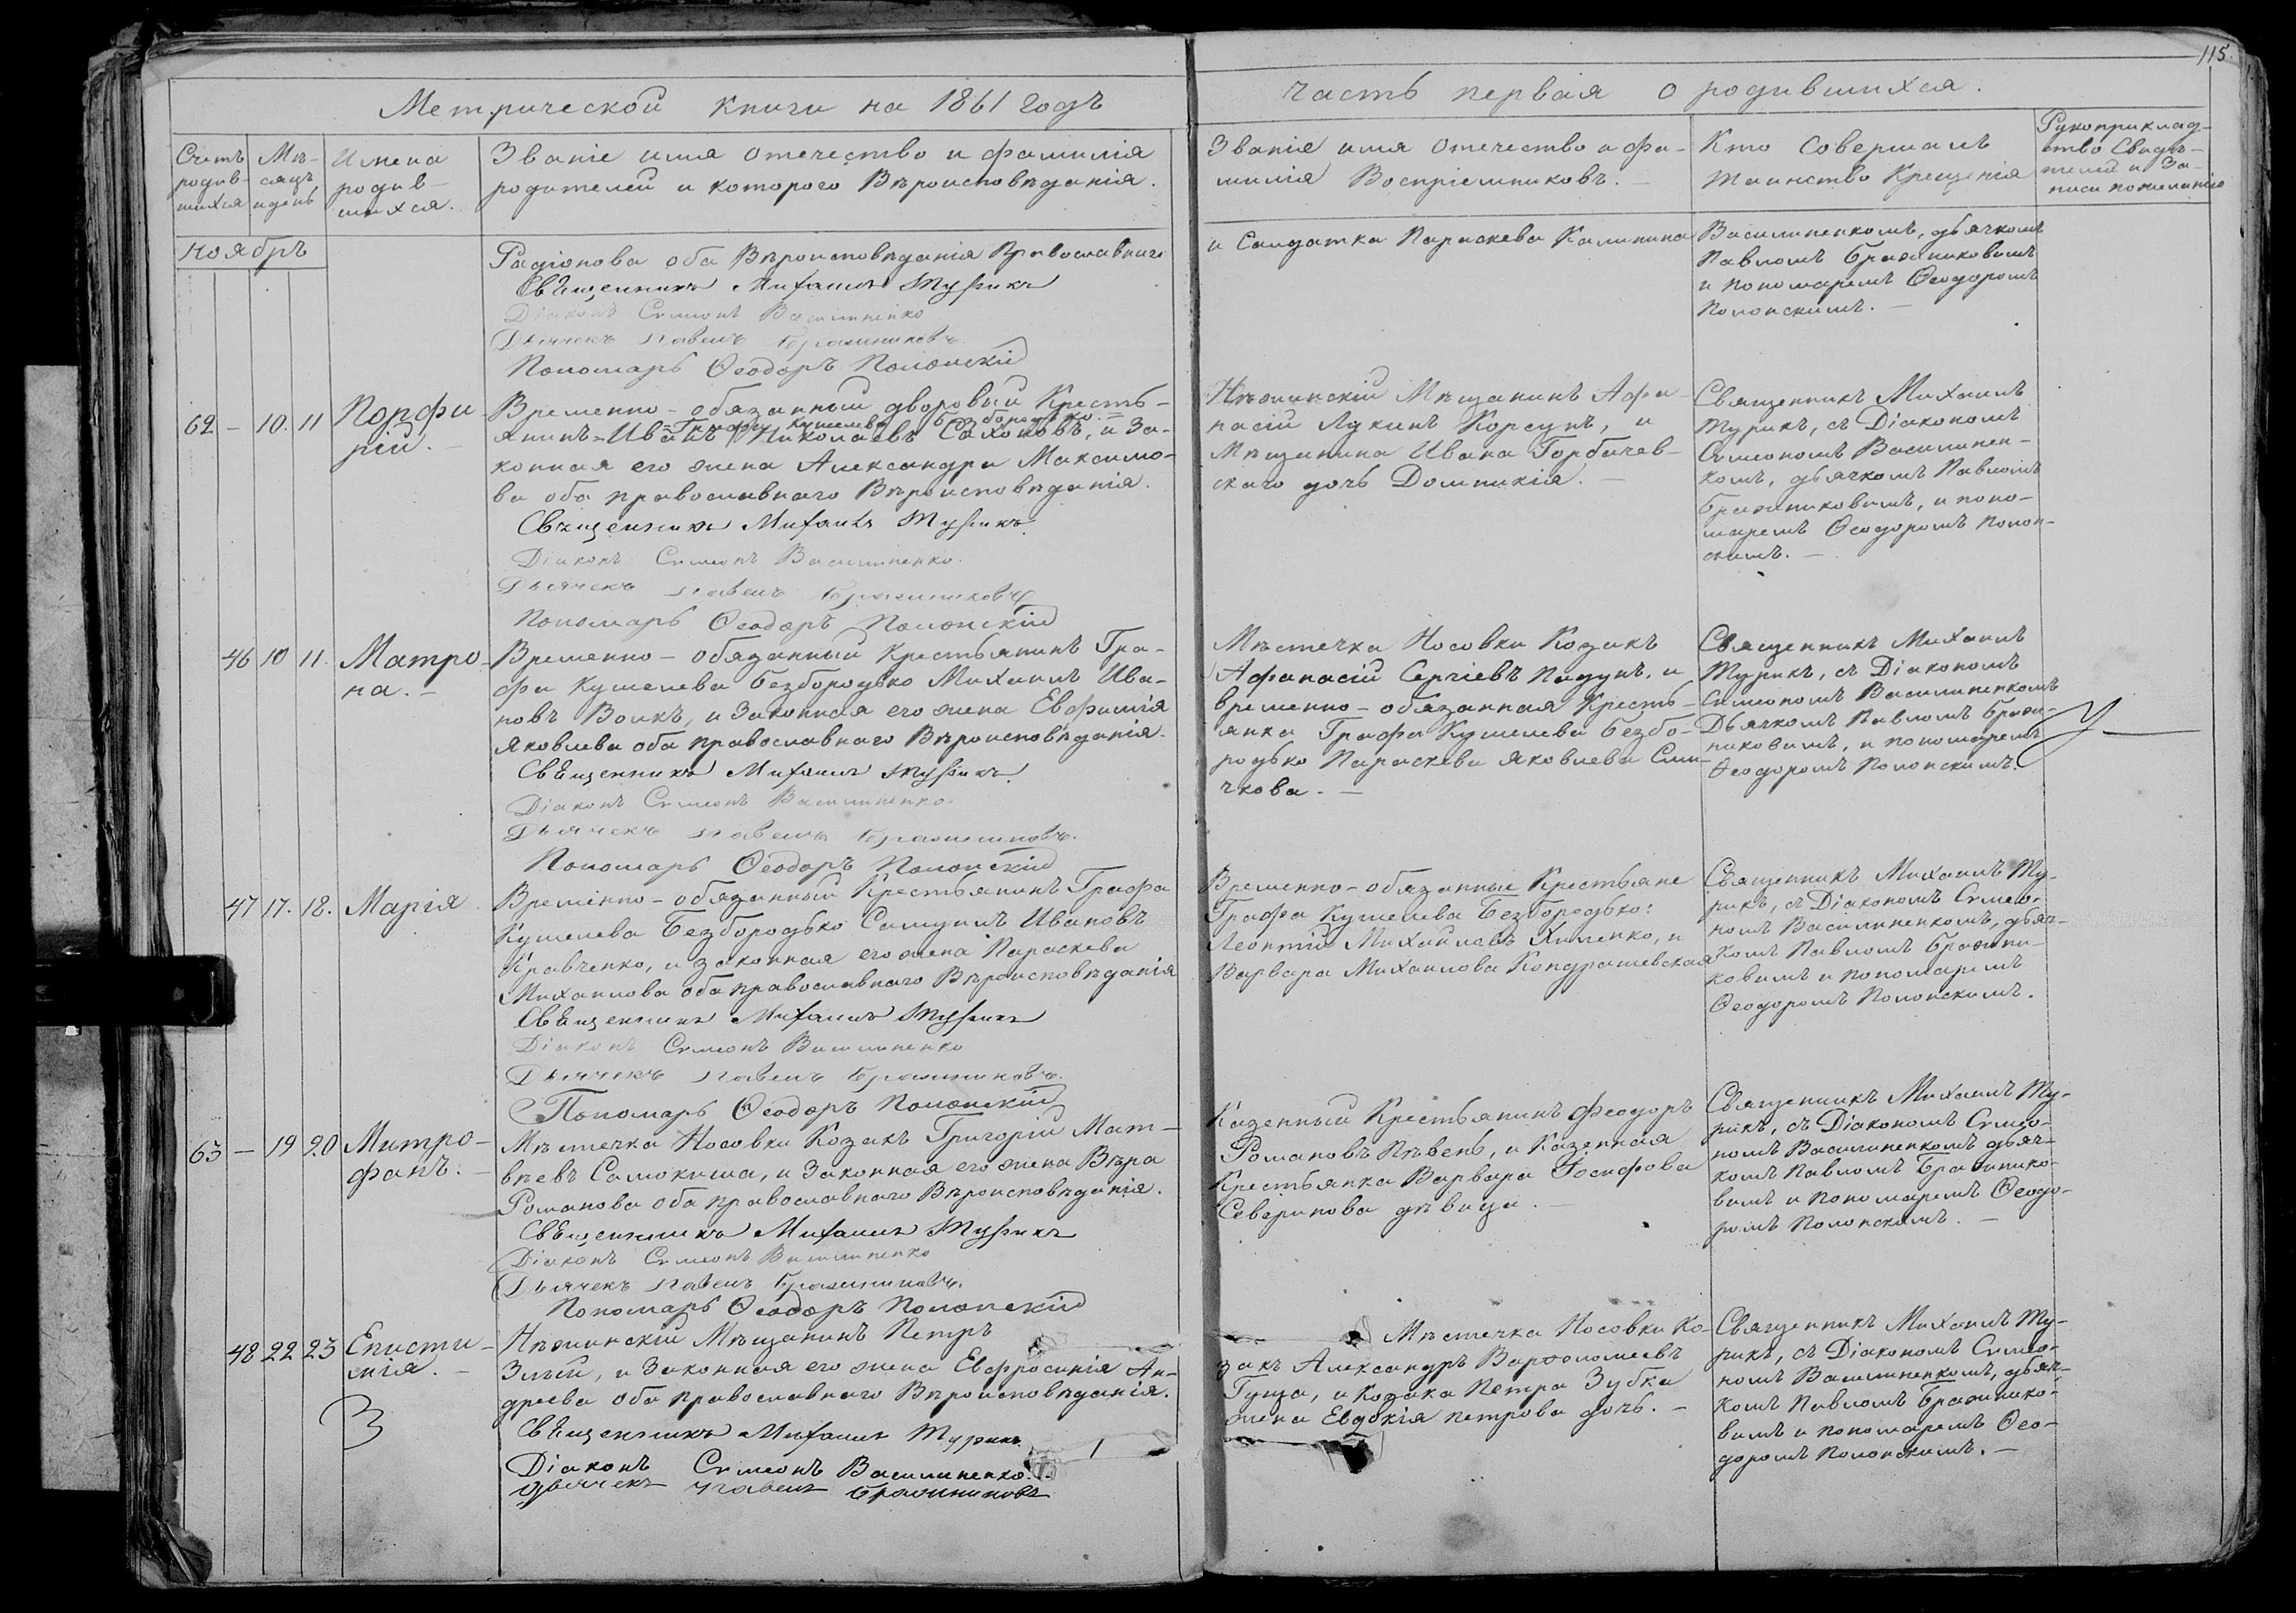 115.
Метрической книги на 1861 годъ
часть первая о родившихся.
Счетъ родив-шихся
Мѣ-сяцъ и день
Имена родив-шихся.
Званіе имя отечество и фамилія
родителей и которого Вѣроисповѣданія.
Званіе имя отечество и фа-
милія Воспріемниковъ. —
Кто Совершалъ
таинство Крещенія
Рукоприклад-
ство Свидѣ-
телей и За-
писи по желанію
ноябръ
Радіонова оба Вѣроисповѣданія Православнаго
Свѣщенникъ Михаилъ Турикъ
Діаконъ Симеонъ Василиненко
Дьячекъ Павелъ Бражниковъ.
Пономарь Ѳеодоръ Полонскій
и Салдатка Параскева Калинина
Василиненкомъ, дьячкомъ
Павломъ Бражниковымъ
и пономаремъ Ѳеодоромъ
Полонскимъ. —
62 — 10. 11
Порфи-
рій. —
Временно-обязанный дворовый Кресть-
= Графа Кушелева Безбородько. =
янинъ Иванъ Николаевъ Сахоновъ, и за-
конная его жена Александра Максимо-
ва оба православнаго Вѣроисповѣданія.
Свѣщенникъ Михаилъ Турикъ
Діаконъ Симеонъ Василиненко.
Дьячекъ Павелъ Бражниковъ
Пономарь Ѳеодоръ Полонскій
Нѣжинскій Мѣщанинъ Афа-
насій Лукинъ Корсунъ, и
Мѣщанина Ивана Горбачев-
скаго дочь Домникія. —
Священникъ Михаилъ
Турикъ, съ Діакономъ
Симеономъ Василинен-
комъ, дьячкомъ Павломъ
Бражниковымъ, и поно-
маремъ Ѳеодоромъ Полон-
скимъ. —
46 10 11.
Матро-
на. —
Временно-обязанный Крестьянинъ Гра-
фа Кушелева Безбородько Михаилъ Ива-
новъ Волкъ, и Законная его жена Евфимія
Яковлева оба православнаго Вѣроисповѣданія.
Свѣщенникъ Михаилъ Турикъ
Діаконъ Симеонъ Василиненко.
Дьячекъ Павелъ Бражниковъ.
Пономарь Ѳеодоръ Полонскій
Мѣстечка Носовки Козакъ
Афанасій Сергіевъ Падунъ, и
временно-обязанная Кресть-
янка Графа Кушелева Безбо-
родько Параскева Яковлева Сми-
чкова. —
Священникъ Михаилъ
Турикъ, съ Діакономъ
Симеономъ Василиненкомъ
Дьячкомъ Павломъ Браж-
никовымъ, и пономаремъ
Ѳеодоромъ Полонскимъ.
47 17. 18.
Марія
Временно-обязанный Крестьянинъ Графа
Кушелева Безбородько Самуилъ Ивановъ
Кравченко, и законная его жена Параскева
Михаилова оба православнаго Вѣроисповѣданія
Свѣщенникъ Михаилъ Турикъ
Діаконъ Симеонъ Василиненко
Дьячекъ Павелъ Бражниковъ.
Пономарь Ѳеодоръ Полонскій
Временно-обязанные Крестьяне
Графа Кушелева Безбородько:
Леонтій Михаиловъ Хименко, и
Варвара Михаилова Кондрашевская
Священникъ Михаилъ Ту-
рикъ, съ Діакономъ Симео-
номъ Василиненкомъ, дьяч-
комъ Павломъ Бражни-
ковымъ и пономаремъ
Ѳеодоромъ Полонскимъ.
63 — 19 20
Митро-
фанъ. —
Мѣстечка Носовки Козакъ Григорій Мат-
вѣевъ Самокиша, и Законная его жена Вѣра
Романова оба православнаго Вѣроисповѣданія.
Свѣщенникъ Михаилъ Турикъ
Діаконъ Симеонъ Василиненко
Дьячекъ Павелъ Бражниковъ.
Пономарь Ѳеодоръ Полонскій
Казенный Крестьянинъ Феодоръ
Романовъ Пѣвень, и Казенная
Крестьянка Варвара Іосифова
Северинова дѣвица. —
Священникъ Михаилъ Ту-
рикъ, съ Діакономъ Симео-
номъ Василиненкомъ дьяч-
комъ Павломъ Бражнико-
вымъ и пономаремъ Ѳеодо-
ромъ Полонскимъ. —
48 22 23
Еписти-
мія. —
Нѣжинскій Мѣщанинъ Петръ
Змѣй, и Законная его жена Евфросинія Ан-
дреева оба православнаго Вѣроисповѣданія.
Свѣщенникъ Михаилъ Турикъ
Діаконъ Симеонъ Василиненко.
Дьячекъ Павелъ Бражниковъ
Мѣстечка Носовки Ко-
закъ Александръ Варфоломеевъ
Гуща, и Козака Петра Зубка
жена Евдокія петрова дочь. —
Священникъ Михаилъ Ту-
рикъ, съ Діакономъ Симео-
номъ Василиненкомъ, дьяч-
комъ Павломъ Бражнико-
вымъ и пономаремъ Ѳео-
доромъ Полонскимъ. —